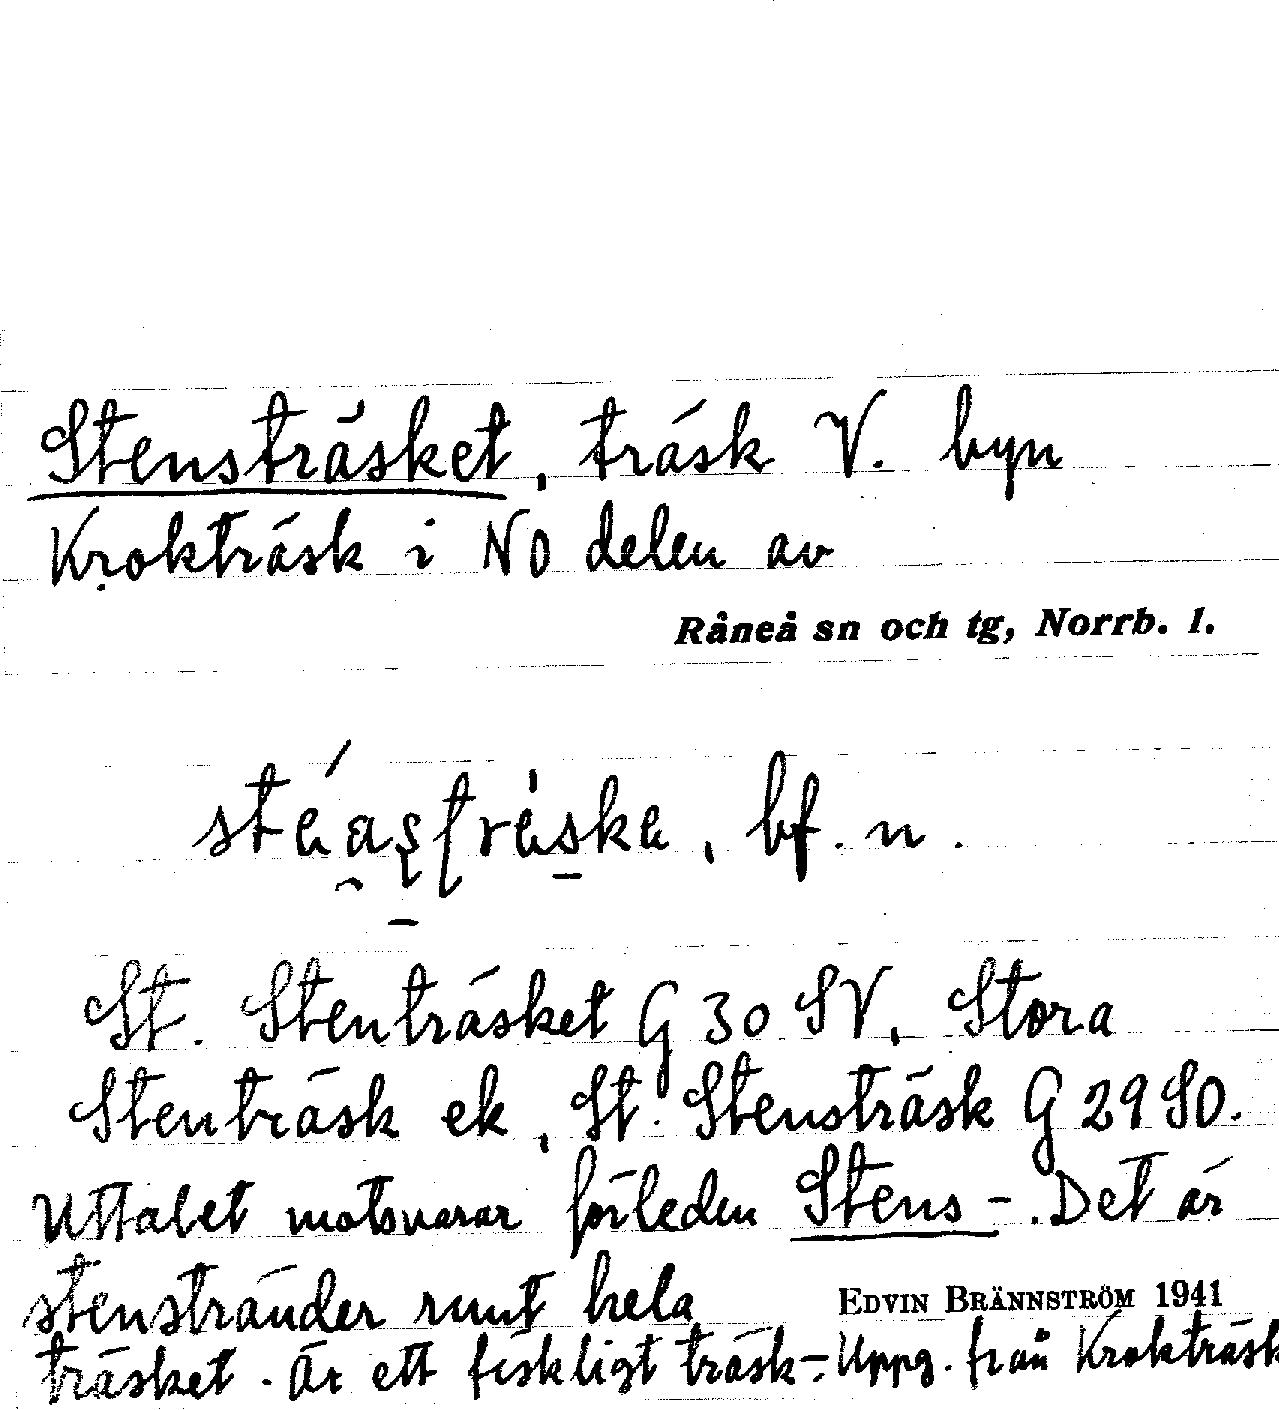 Stensträsket, träsk V. byn
Krokträsk i NO delen av
Råneå sn och tg, Norrb. l.
bf. n.
St. Stenträsket G 30 SV, Stora
Stenträsk ek, St. Stensträsk G 29 SO.
Uttalet motsvarar förleden Stens-. Det är
stenstränder runt hela
EDVIN BRÄNNSTRÖM 1941
träsket. Är ett fiskligt träsk. Uppg. från Krokträsk